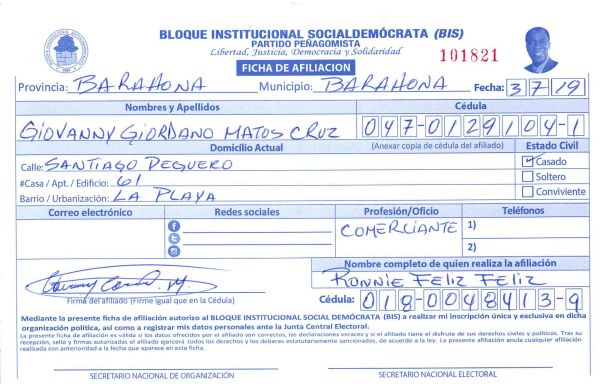 BLOQUE INSTITUCIONAL SOCIALDEMÓCRATA (BIS)
PARTIDO PEÑAGOMISTA
Libertad, Justicia, Democracia y Solidaridad
101821
FICHA DE AFILIACION
Provincia: BARAHONA Municipio: BARAHONA Fecha: 3/7/19
Nombres y Apellidos Cédula
GIOVANNY GIORDANO MATOS CRUZ 047-0129104-1
Domicilio Actual (Anexar copia de cédula del afiliado) Estado Civil
Calle: SANTIAGO PEGUERO Casado
#Casa / Apt. / Edificio: 61 Soltero
Barrio / Urbanización: LA PLAYA Conviviente
Correo electrónico Redes sociales Profesión/Oficio Teléfonos
COMERCIANTE 1)
2)
Nombre completo de quien realiza la afiliación
RONNIE FELIZ FELIZ
Firma del afiliado (Firme igual que en la Cédula) Cédula: 018-0048413-9
Mediante la presente ficha de afiliación autorizo al BLOQUE INSTITUCIONAL SOCIAL DEMÓCRATA (BIS) a realizar mi inscripción única y exclusiva en dicha
organización política, así como a registrar mis datos personales ante la Junta Central Electoral.
La presente ficha de afiliación es valida si los datos ofrecidos por el afiliado son correctos, las declaraciones veraces y si el afiliado tiene el disfrute de sus derechos civiles y políticos. Tras su
recepción, sello y firmas autorizadas el afiliado ejercerá todos los derechos y los deberes estatutariamente sancionados, de acuerdo a la ley. La presente afiliación anula cualquier afiliación
realizada con anterioridad a la fecha que aparece en esta ficha.
SECRETARIO NACIONAL DE ORGANIZACIÓN SECRETARIO NACIONAL ELECTORAL